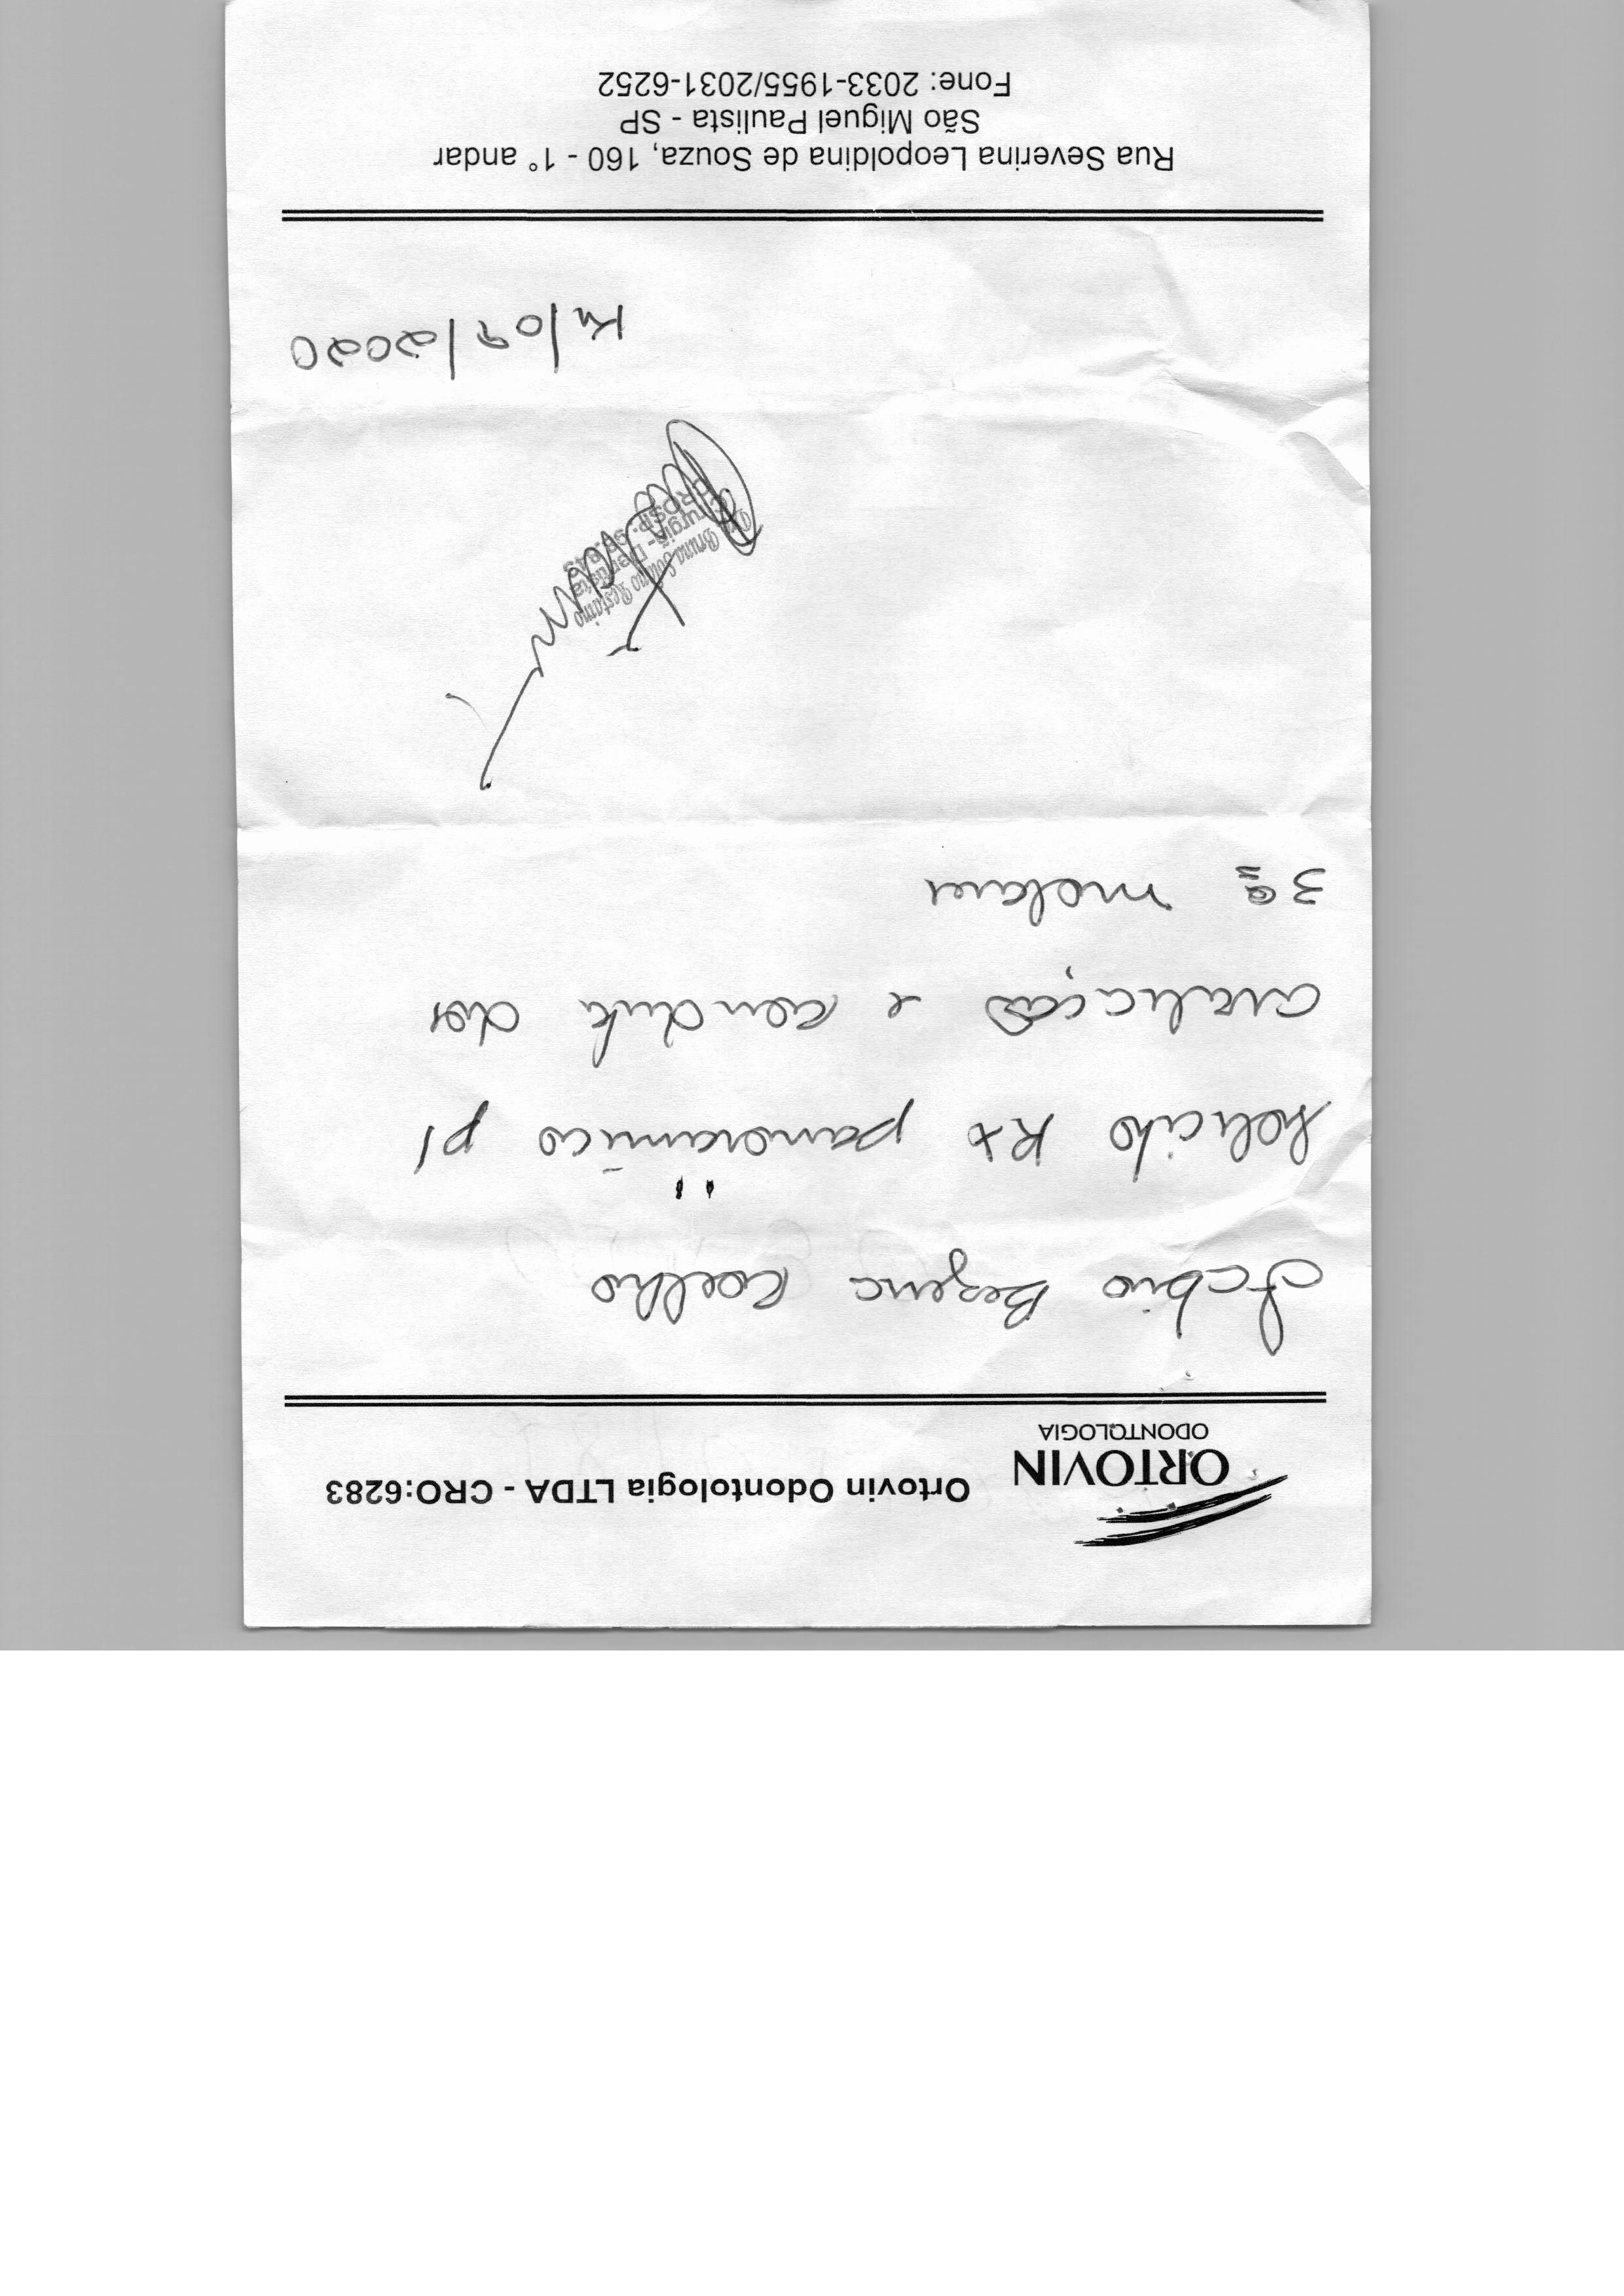 ORTOVIN
ODONTOLOGIA
Ortovin Odontologia LTDA - CRO:6283
Fabio Bezerra Coelho
Solicito RX panorâmico p/
avaliação e conduta dos
3ºs molares
Cirurgiã-Dentista
CROSP:
/09/2020
Rua Severina Leopoldina de Souza, 160 - 1° andar
São Miguel Paulista - SP
Fone: 2033-1955/2031-6252